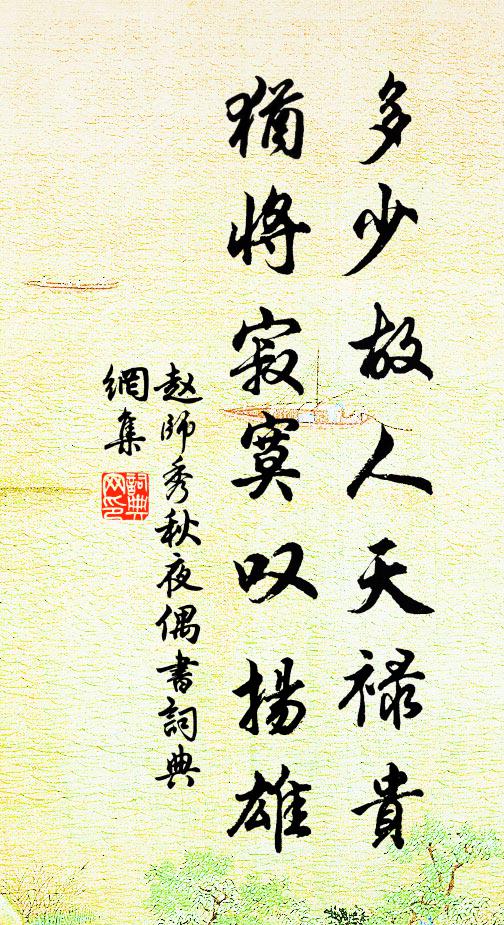 多少故人天禄貴
猶將寂寞叹揚雄
赵師秀秋夜偶書詞典
網集
詞典
网印